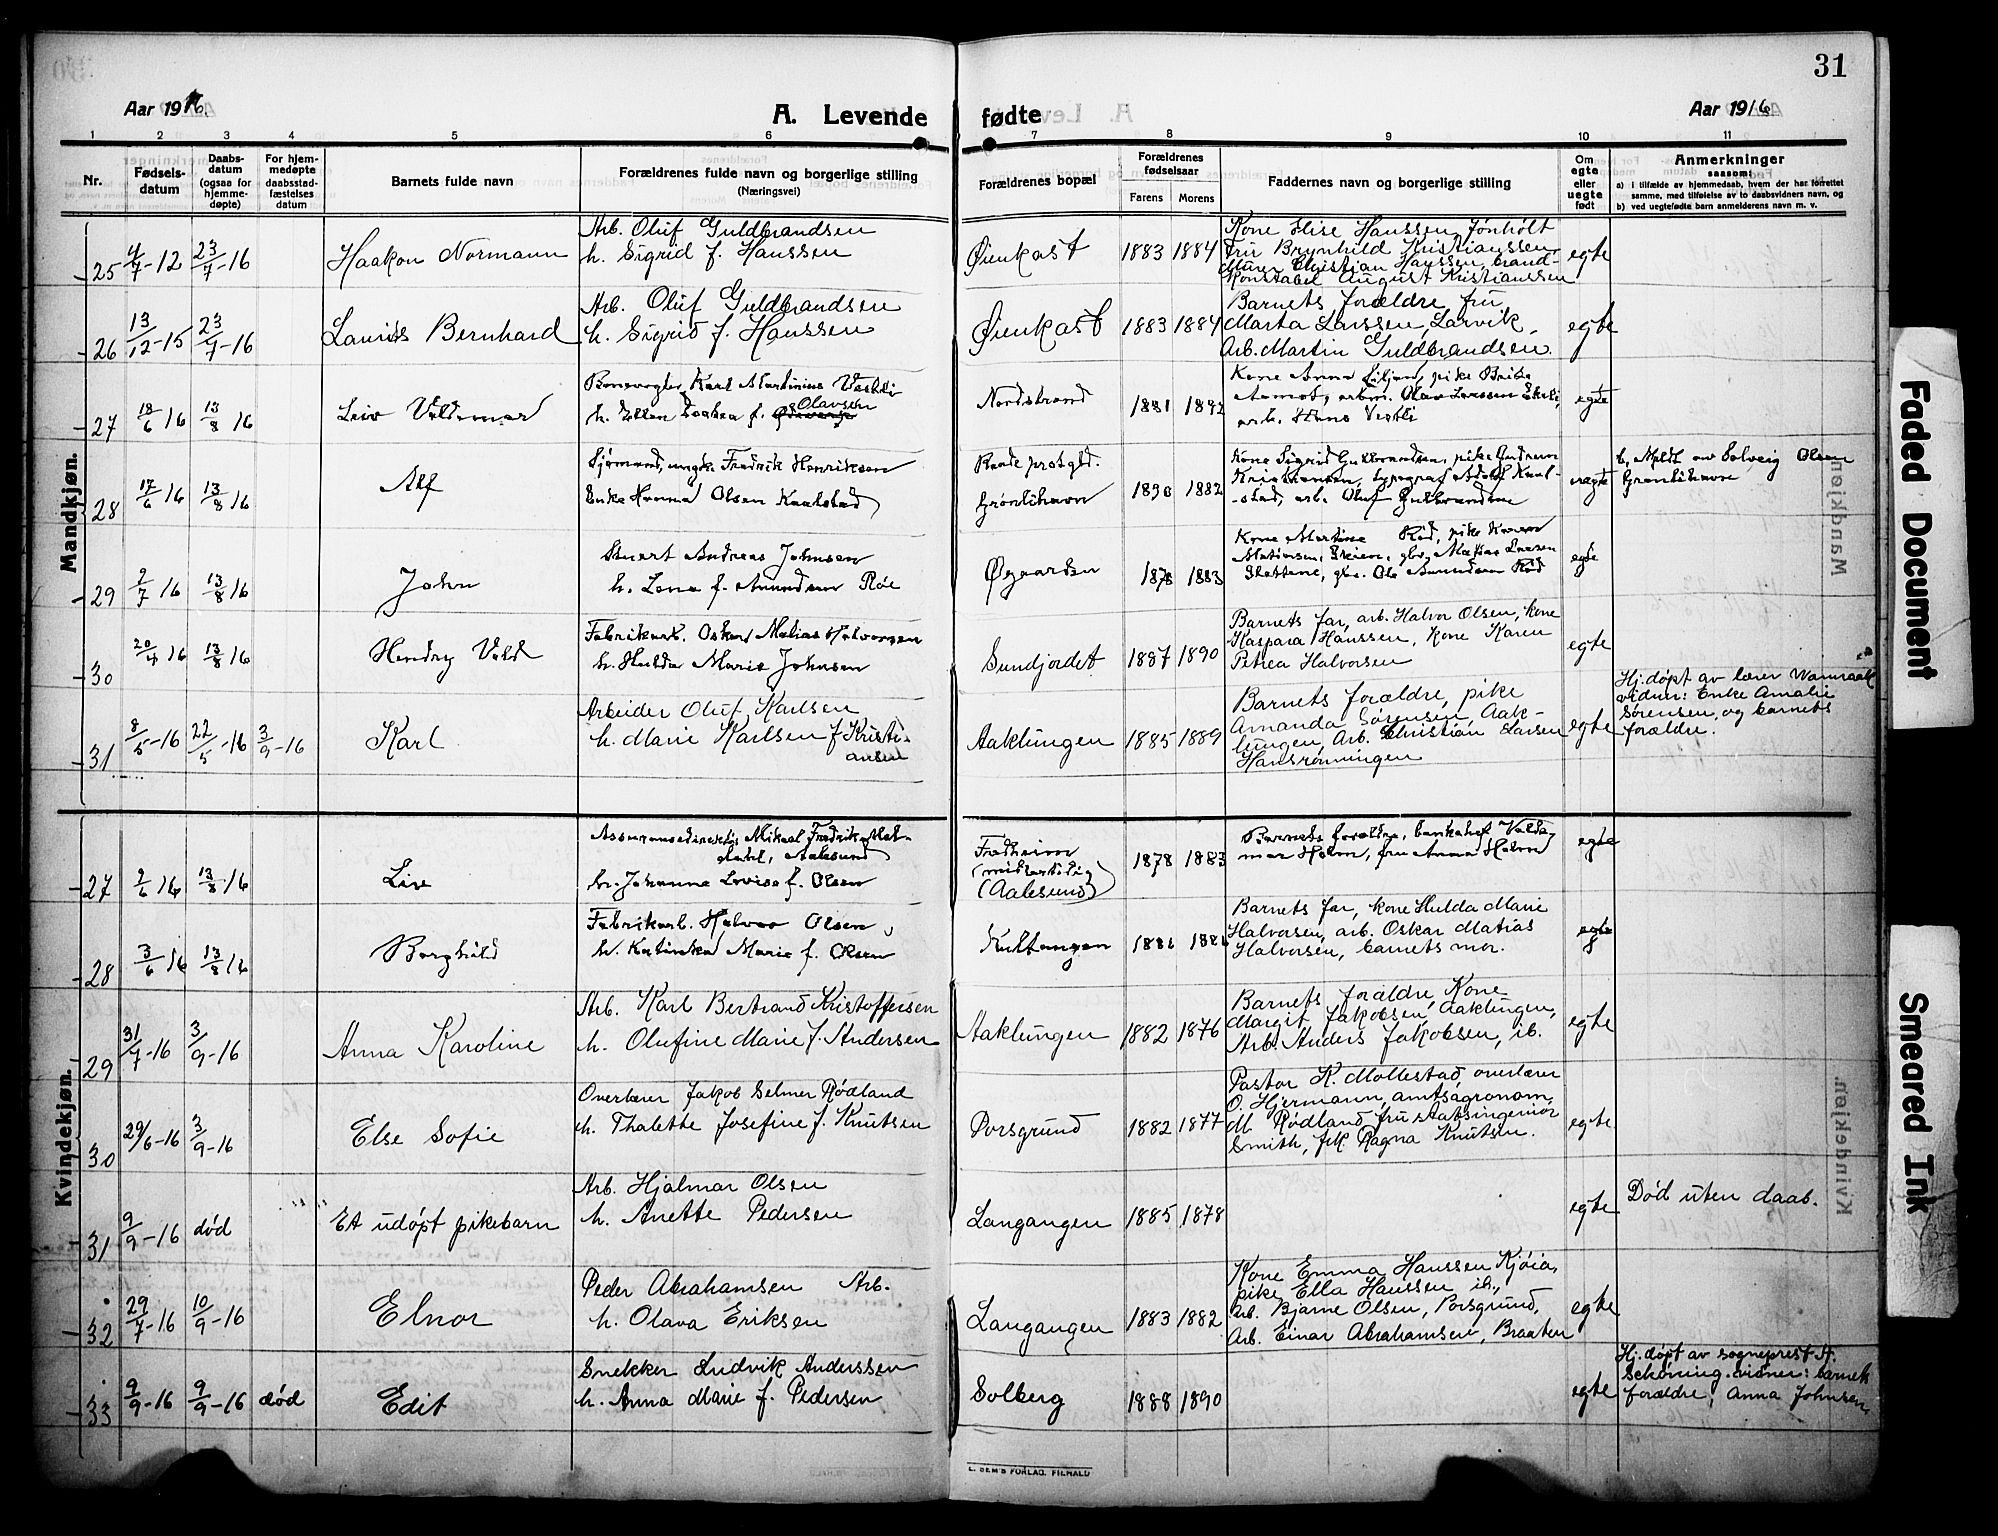 31
Aar 1916.
A. Levende fødte
Aar 1916
1 2 3 4 5 6 7 8 9 10 11
Nr.
Fødsels-
datum
Daabs-
datum
(ogsaa for
hjemme-
døpte)
For hjem-
medøpte
daabsstad-
fæstelses
datum
Barnets fulde navn
Forældrenes fulde navn og borgerlige stilling
(Næringsvei)
Forældrenes bopæl
Forældrenes
fødselsaar
Farens Morens
Faddernes navn og borgerlige stilling
Om
egte
eller
uegte
født
Anmerkninger
saasom:
a) i tilfælde av hjemmedaab, hvem der har forrettet
samme, med tilføielse av to daabsvidners navn, og
b) ved uegtefødte barn anmelderens navn m. v.
Mandkjøn.
25 4/7-12 23/7-16 Haakon Normann
Arb. Oluf Guldbrandsen
h. Sigrid f. Hanssen
Øienkast 1883 1884
Kone Elise Hanssen, Jønholt
Fru Brynhild Kristianssen
Murer Christian Hanssen, brand-
konstabel August Kristianssen
egte
26 13/12-15 23/7-16 Laurits Bernhard
Arb. Oluf Guldbrandsen
h. Sigrid f. Hanssen
Øienkast 1883 1884
Barnets forældre, fru
Marta Larssen, Larvik
Arb. Martin Guldbrandsen.
egte
27 18/6 16 13/8 16 Leiv Valdemar
Karl Martinius Vestli
h. Ellen f. Olavsen
Nordstrand 1881
Kone Anna pike
Aamot, Olav Larssen
arb. Hans Vestli
egte
28 17/6 16 13/8 16 Alf
Sjømand, ungk. Fredrik Henriksen
Enke Hanna Olsen Kaalstad
Raade prstgld.
Grønlihavn 1890 1882
Kone Sigrid Gulbrandsen, pike Gudrun
Kristiansen, typograf Adolf Kaal-
stad, arb. Oluf Gulbrandsen
uegte
b, Meldt av Solveig Olsen
Grønlihavn
29 9/7 16 13/8 16 John
Andreas Johnsen
h. Lena f. Amundsen Røe
Øgaarden 1878 1883
Kone Martine Rød, pike Karen
Matiassen, Skien, gbr. Matias Larsen
gbr. Ole Amundsen Rød
egte
30 20/4 16 13/8 16 Hendry Vald
Fabrikarb. Oskar Matias Halvorsen
h. Hulda Marie Johnsen
Sundjordet 1887 1890
Barnets far, arb. Halvor Olsen, kone
Kaspara Hanssen, kone Karen
Petrea Halvorsen
egte
31 8/5-16 22/5-16 3/9-16 Karl
Arbeider Oluf Karlsen
h. Marie Karlsen f. Kristi-
ansen
Aaklungen 1885 1889
Barnets forældre, pike
Amanda Sørensen, Aak-
lungen, Arb. Christian Larsen
Hansrønningen
egte
Hj.døpt av lærer Wamraak
vidner: Enke Amalie
Sørensen, og barnets
forældre.
Kvindekjøn.
27 2/6 16 13/8 16 Liv
Assuransedirektør Mikael Fredrik
Aalesund
h. Johanne Lovise f. Olsen
Fredheim
(midlertidig)
(Aalesund) 1878 1883
Barnets forældre, bankchef Valde-
mar Holm, fru Anna Holm
egte
28 3/6 16 13/8 16 Borghild
Fabrikarb. Halvor Olsen,
h. Katinka Marie f. Olsen
Kultangen 1886
Barnets far, kone Hulda Marie
Halvorsen, arb. Oskar Matias
Halvorsen, barnets mor.
egte
29 31/7-16 3/9-16 Anna Karoline
Arb. Karl Bertrand Kristoffersen
h. Olufine Marie f. Andersen
Aaklungen 1882 1876
Barnets forældre, Kone
Margit Jakobsen, Aaklungen,
Arb. Anders Jakobsen, ib.
egte
30 29/6-16 3/9-16 Else Sofie
Overlærer Jakob Selmer Rødland
h. Thalette Josefine f. Knutsen
Porsgrund 1882 1877
Pastor K. Mollestad, overlærer
O. Hjermann, amtsagronom
M. Rødland, fru statsingeniør
Smith, frk. Ragna Knutsen.
egte
31 9/9-16 død Et udøpt pikebarn
Arb. Hjalmar Olsen
h. Anette Pedersen
Langangen 1885 1878
egte
Død uten daab.
32 29/7-16 10/9-16 Elnor
Peder Abrahamsen Arb.
h. Olava Eriksen
Langangen 1883 1882
Kone Emma Hanssen Kjøia,
pike Ella Hanssen ib.,
Arb. Bjarne Olsen, Porsgrund,
Arb. Einar Abrahamsen, Braaten
egte
33 9/9-16 9/9-16 død Edit
Snekker Ludvik Anderssen
h. Anna Marie f. Pedersen
Solberg 1888 1890
egte
Hj.døpt av sogneprest A.
Schøning. vidner: barnets
forældre, Anna Johnsen,
E. SEM'S FORLAG, FR.HALD
Faded Document
Smeared Ink